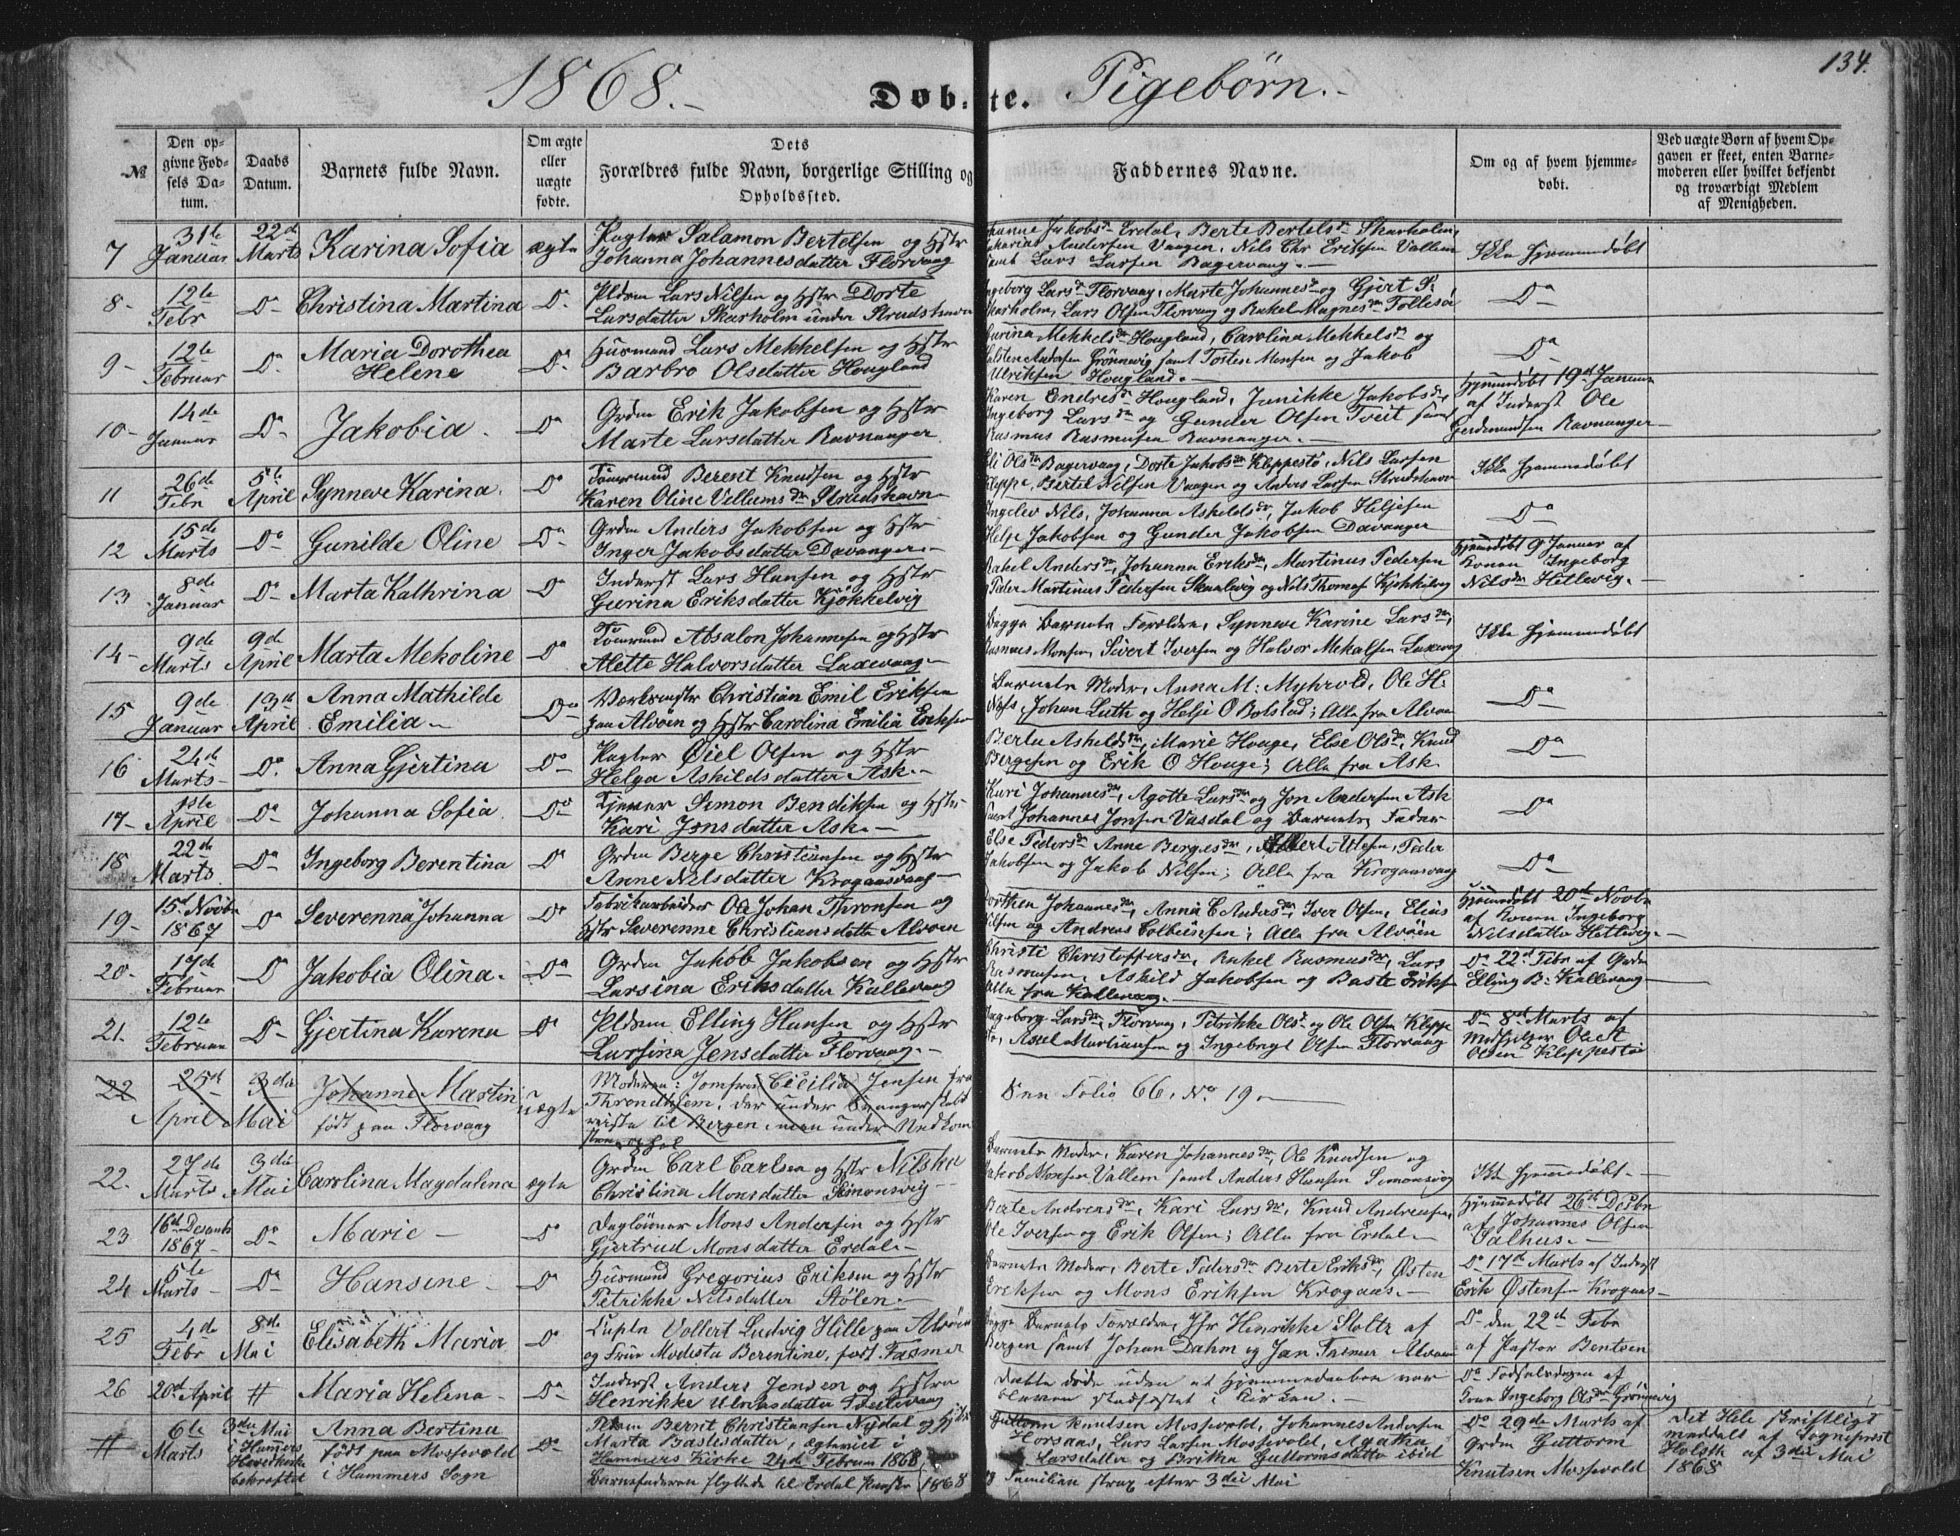 134.
1868.- Døbte. Pigebørn.-
№
Den opgivne Fødsels Datum.
Daabs Datum.
Barnets fulde Navn.
Om ægte eller uægte fødte.
Dets Forældres fulde Navn, borgerlige Stilling og Opholdssted.
Faddernes Navne.
Om og af hvem hjemmedøbt.
Ved uægte Børn af hvem Opgaven er skeet, enten Barnemoderen eller hvilket bekjendt og troværdigt Medlem af Menigheden.
7 31te Januar 22de Marts Karina Sofia ægte
Salamon Bertelsen og Hstr
Johanna Johannesdatter Florvaag
Jakobsdr Erdal, Berte Bertelsdr Skarholm,
Andersen Vaagen, Nils Chr Eriksen Vallem
samt Lars Larsen Bagervaag.-
Ikke hjemmedøbt
8- 12te Febr Do Christina Martina Do
Pldsm Lars Nilsen og Hstr Dorte
Larsdatter Skarholm under Strudshavn
Ingeborg Larsdr Florvaag, Marte Johannesdr og Gjert P.
Skarholm, Lars Olsen Florvaag og Rakel Magnesdr Follesø
Do
9- 12te Februar Do Maria Dorothea Helene Do
Husmand Lars Mekkelsen og Hstr
Barbro Olsdatter Hougland
Mekkelsdr Hougland, Carolina Mekkelsdr og
Andersen Grønnevig samt Torsten Monsen og Jakob
Ulriksen Hougland.-
Do
10- 14de Januar Do Jakobia. Do
Grdm Erik Jakobsen og Hstr
Marte Larsdatter Ravnanger
Karen Endresdr Hougland, Jakobsdr,
Ingeborg Larsdr og Gunder Olsen Tveit samt
Rasmus Rasmusen Ravnanger.-
Hjemmedøbt 19de Januar
af Inderst Ole
Ravnanger-
11 26de Febr 5te April Synneve Karina. Do
Tømmermd Berent Knudsen og Hstr
Karen Oline Vellumsdr Strudshavn
Eli Olsdr Bagervaag, Dorte Jakobsdr Kleppestø, Nils Larsen
Kleppe, Bertel Nilsen Vaagen og Anders Larsen Strudshavn
Ikke hjemmedøbt
12 15de Marts Do Gunilde Oline Do
Grdm Anders Jakobsen og Hstr
Inger Jakobsdatter Davanger.-
Nils, Johanna Askildsdr, Jakob Heljesen
Helje Jakobsen og Gunder Jakobsen Davanger
Do
13 8de Januar Do Marta Kathrina Do
Inderst Lars Hansen og Hstr
Gurina Eriksdatter Kjøkkelvig
Rakel Andersdr, Johanna Eriksdr, Martinus Pedersen
Peder Martinus Pedersen Skaalevig og Nils Thomas Kjøkkelvig
Hjemmedøbt 9 Januar af
Konen Ingeborg
Nilsdr Hetlevig.-
14- 9de Marts 9de April Marta Mekoline Do
Absalon Johannesen og Hstr
Alette Halvorsdatter Laxevaag-
Begge Barnets Forældre, Synneve Karine Larsdr,
Rasmus Monsen, Sivert Iversen og Halvor Mekalsen Laxevaag
Ikke hjemmedøbt
15 9de Januar 13de April Anna Mathilde Emilia- Do
Christian Emil Eriksen
paa Alvøen og Hstr Carolina Emilia Eriksen
Barnets Moder, Anna M: Myhrvold, Ole H.
Næss, Johan Luth og Helje O Bolstad; Alle fra Alvøen
Do
16 24de Marts- Do Anna Gjertina Do
Øiel Olsen og Hstr
Helga Askildsdatter Ask-
Berta Askeldsdr, Marie Houge, Else Olsdr, Knud
Bergesen og Erik O Houge; Alle fra Ask
Do
17- 1ste April Do Johanna Sofia. Do
Simon Bendiksen og Hstr
Kari Jonsdatter Ask-
Kari Johannesdr, Agotte Larsdr og Jon Andersen Ask
samt Johannes Jonsen Vasdal og Barnets Fader
Do
18 22de Marts Do Ingeborg Berentina Do
Grdm Berge Christiansen og Hstr
Anne Nilsdatter Krogaasvaag-
Else Pedersdr Anne Bergesdr, Peder
Jakobsen og Jakob Nilsen; Alle fra Krogaasvaag
Do
19- 15de Novbr 1867 Do Severenna Johanna Do
Fabrikarbeider Ole Johan Thronsen og
Hstr Severenne Christiansdatter Alvøen
Dorthea Johannesdr, Anna C Andersdr, Iver Olsen, Elias
Olsen og Andreas Colbeinsen; Alle fra Alvøen
Hjemmedøbt 20de Novbr
af Konen Ingeborg
Nilsdatter Hetlevig.-
20- 17de Februar Do Jakobia Olina. Do
Grdm Jakob Jakobsen og Hstr
Larsina Eriksdatter Kallevaag
Christi Christoffersdr, Rakel Rasmusdr, Lars
Rasmusen, Askild Jakobsen og Baste Eriksen
Alle fra Kallevaag.-
Do 22de Febr af Grdm
Elling R. Kallevaag-
21. 12te Februar Do Gjertina Karena Do
Pldsm Elling Hansen og Hstr
Larsina Jensdatter Florvaag.-
Ingeborg Larsdr, Florvaag, Petrikke Olsdr og Ole Olsen Kleppe
stø, Aksel Martiusen og Ingebrigt Olsen Florvaag
Do 8de Marts af
Medhjelper Ole K
Olsen Kleppestø
22 25de April 3die Mai Johanne Martin
født paa Florvaag uægte
Moderen: Jomfru Cicilia Jensen fra
Throndhjem, der under Svangerskab
reiste til Bergen, men under Nedkom
sten
Folio 66, No 19.-
22. 27de Marts 3die Mai Carolina Magdalena ægte
Grdm Carl Carlsen og Hstr Nilska
Christina Monsdatter Simonsvig-
Barnets Moder, Karen Johannesdr, Ole Knudsen og
Jakob Vallem samt Anders Hansen Simonsvig
Ikke hjemmedøbt.-
23 16de Decemb 1867- Do Marie- Do
Dagløinner Mons Andersen og Hstr
Gjertrud Monsdatter Erdal.-
Berte Andreasdr, Kari Larsdr, Knud Andreesen,
Ole Iversen og Erik Olsen; Alle fra Erdal.-
Hjemmedøbt 26de Decbr
af Johannes Olsen
Salhus.-
24 5te Marts- Do Hansine- Do
Husmand Gregorius Eriksen og Hstr
Petrikke Nilsdatter Stølen.-
Barnets Moder, Berte Pedersdr Berte Eriksdr, Østen
Eriksen og Mons Eriksen Krogaas.-
Do 17de Marts af Inderst
Erik Østensen Krogaas-
25 4de Febr 8de Mai Elisabeth Maria Do
Vollert Ludvig Hille paa Alvøen
og Frue Modesta Berentine, født Fasmer
Begge Barnets Forældre, Jfr Henrikke Stoltz af
Bergen samt Johan Dahm og Jan Fasmer Alvøen
Do den 22de Febr
af Pastor Bentsen
26 20de April # Maria Helena- Do
Inderst Anders Jensen og Hstru
Henrikke Ulriksdatter
Dette døde uden at Hjemmedaaben var
bleven stadfæstet i Kirken.-
Do Fødselsdagen af
Konen Ingeborg Olsdr Grønnevig
# 6te Marts 3die Mai
i Hammers
Hovedkirke
bekræftet
Anna Bertina
født paa Mossevold
i Hammers Sogn Do
Bernt Christiansen Nydal og Hstr
Marta Bastesdatter, ægteviet i
Hammers Kirke 24de Februar 1868
Barnefaderen flyttede til Erdal 1868
Guttorm Knutsen Mossevold, Johannes Andersen
Horsaas, Lars Larsen Mossevold, Agatha
Larsdatter og Britha Guttormsdatter ibid
Familien strax efter 3die Mai
Do 29de Marts af
Grdm Guttorm
Knutsen Mossevold
Det Hele skriftligt
meddelt af Sogneprest
Holdth af 3die Mai
1868